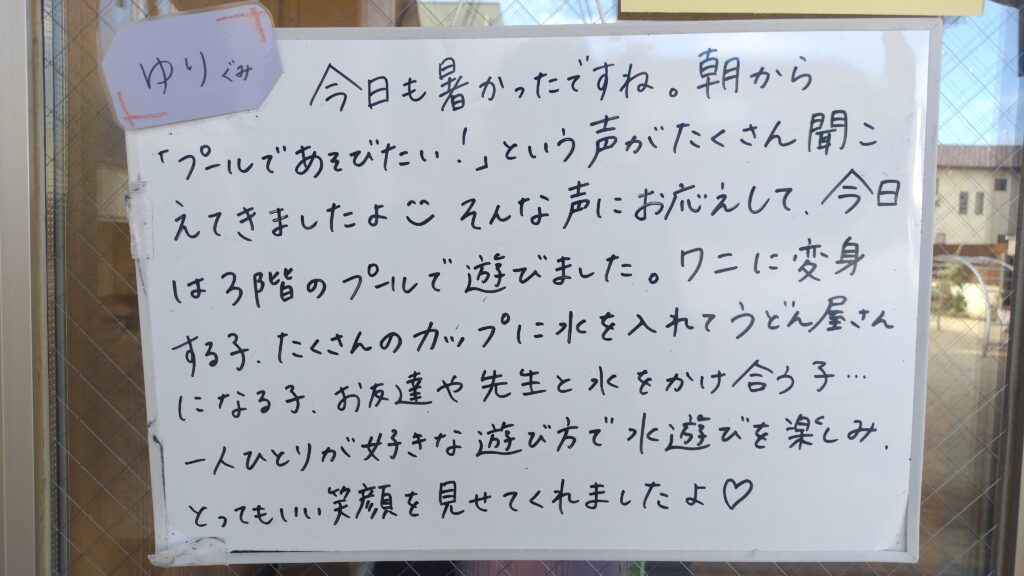 ゆりぐみ
今日も暑かったですね。朝から
「プールであそびたい!」という声がたくさん聞こ
えてきましたよ そんな声にお応えして、今日
は3階のプールで遊びました。ワニに変身
する子、たくさんのカップに水を入れてうどん屋さん
になる子、お友達や先生と水をかけ合う子…
一人ひとりが好きな遊び方で水遊びを楽しみ、
とってもいい笑顔を見せてくれましたよ♡